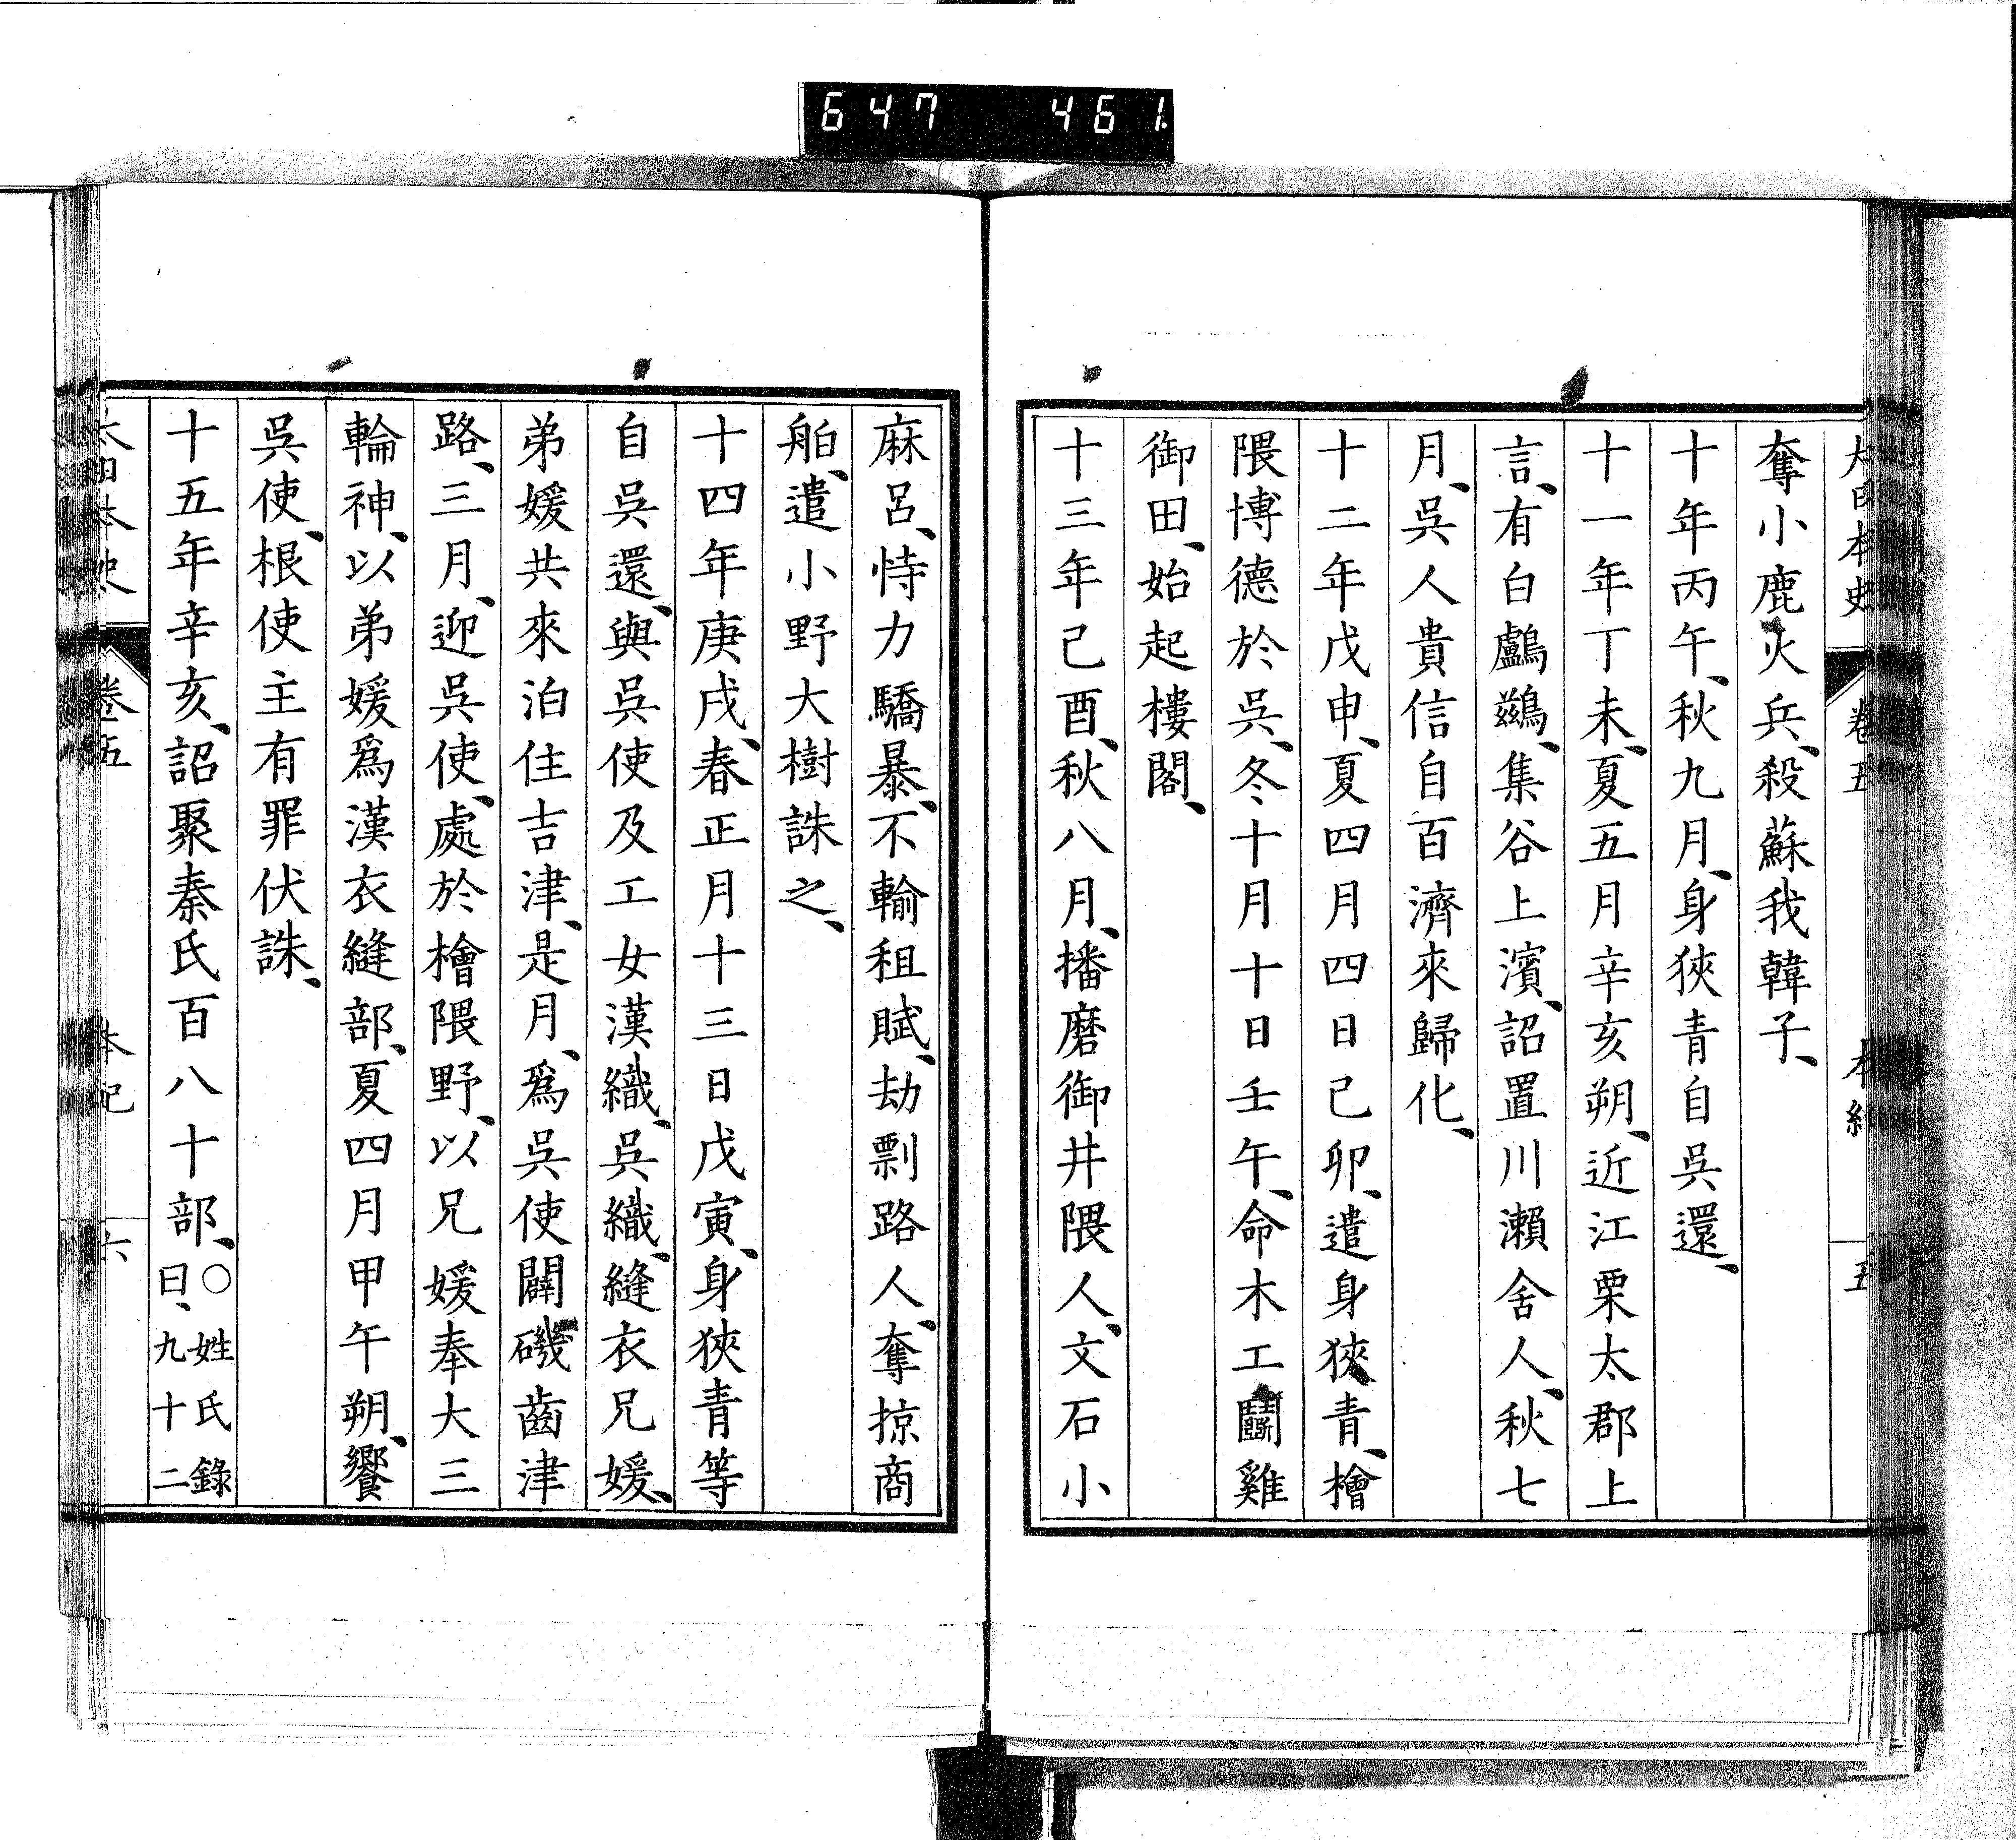 647 461.
大日本史 卷五 本紀 五
奪小鹿火兵、殺蘇我韓子、
十年丙午、秋九月、身狹青自吳還、
十一年丁未、夏五月辛亥朔、近江栗太郡上
言、有白鸕鷀、集谷上濱、詔置川瀨舍人、秋七
月、吳人貴信自百濟來歸化、
十二年戊申、夏四月四日己卯、遣身狹青、檜
隈博德於吳、冬十月十日壬午、命木工鬭雞
御田、始起樓閣、
十三年己酉、秋八月、播磨御井隈人、文石小
麻呂、恃力驕暴、不輸租賦、劫剽路人、奪掠商
舶、遣小野大樹誅之、
十四年庚戌、春正月十三日戊寅、身狹青等
自吳還、與吳使及工女漢織、吳織、縫衣兄媛、
弟媛共來泊住吉津、是月、爲吳使闢磯齒津
路、三月、迎吳使、處於檜隈野、以兄媛奉大三
輪神、以弟媛爲漢衣縫部、夏四月甲午朔、饗
吳使、根使主有罪伏誅、
十五年辛亥、詔聚秦氏百八十部、○姓氏錄
曰、九十二
大日本史 卷五 本紀 六